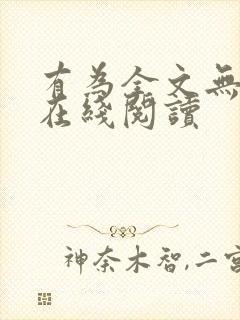 有為全文無
在綫閱讀
神奈木智,二宮